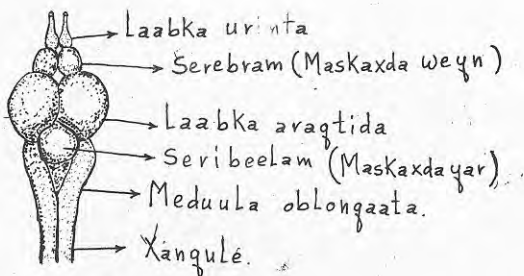 Laabka urinta
Serebram (Maskaxda weyn)
Laabka aragtida
Seribeelam (Maskaxda yar)
Meduula oblongaata.
Xangulé.